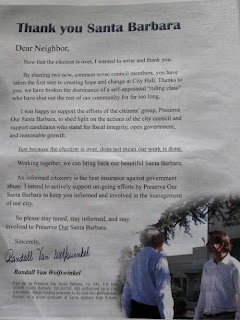 Thank you Santa Barbara
Dear Neighbor,
Now that the election is over, I wanted to write and thank you.
By electing two new, common sense council members, you have
taken the first step to creating hope and change at City Hall. Thanks to
you, we have broken the dominance of a self-appointed "ruling class"
who have shut out the rest of our community for far too long.
I was happy to support the efforts of the citizens' group, Preserve
Our Santa Barbara, to shed light on the actions of the city council and
support candidates who stand for fiscal integrity, open government,
and reasonable growth.
Just because the election is over, does not mean our work is done.
Working together, we can bring back our beautiful Santa Barbara.
An informed citizenry is the best insurance against government
abuse. I intend to actively support on-going efforts by Preserve Our
Santa Barbara to keep you informed and involved in the management
of our city.
So please stay tuned, stay informed, and stay
involved in Preserve Our Santa Barbara.
Sincerely,
Randall Van Wolfswinkel
Randall Van Wolfswinkel
Paid for by Preserve Our Santa Barbara,